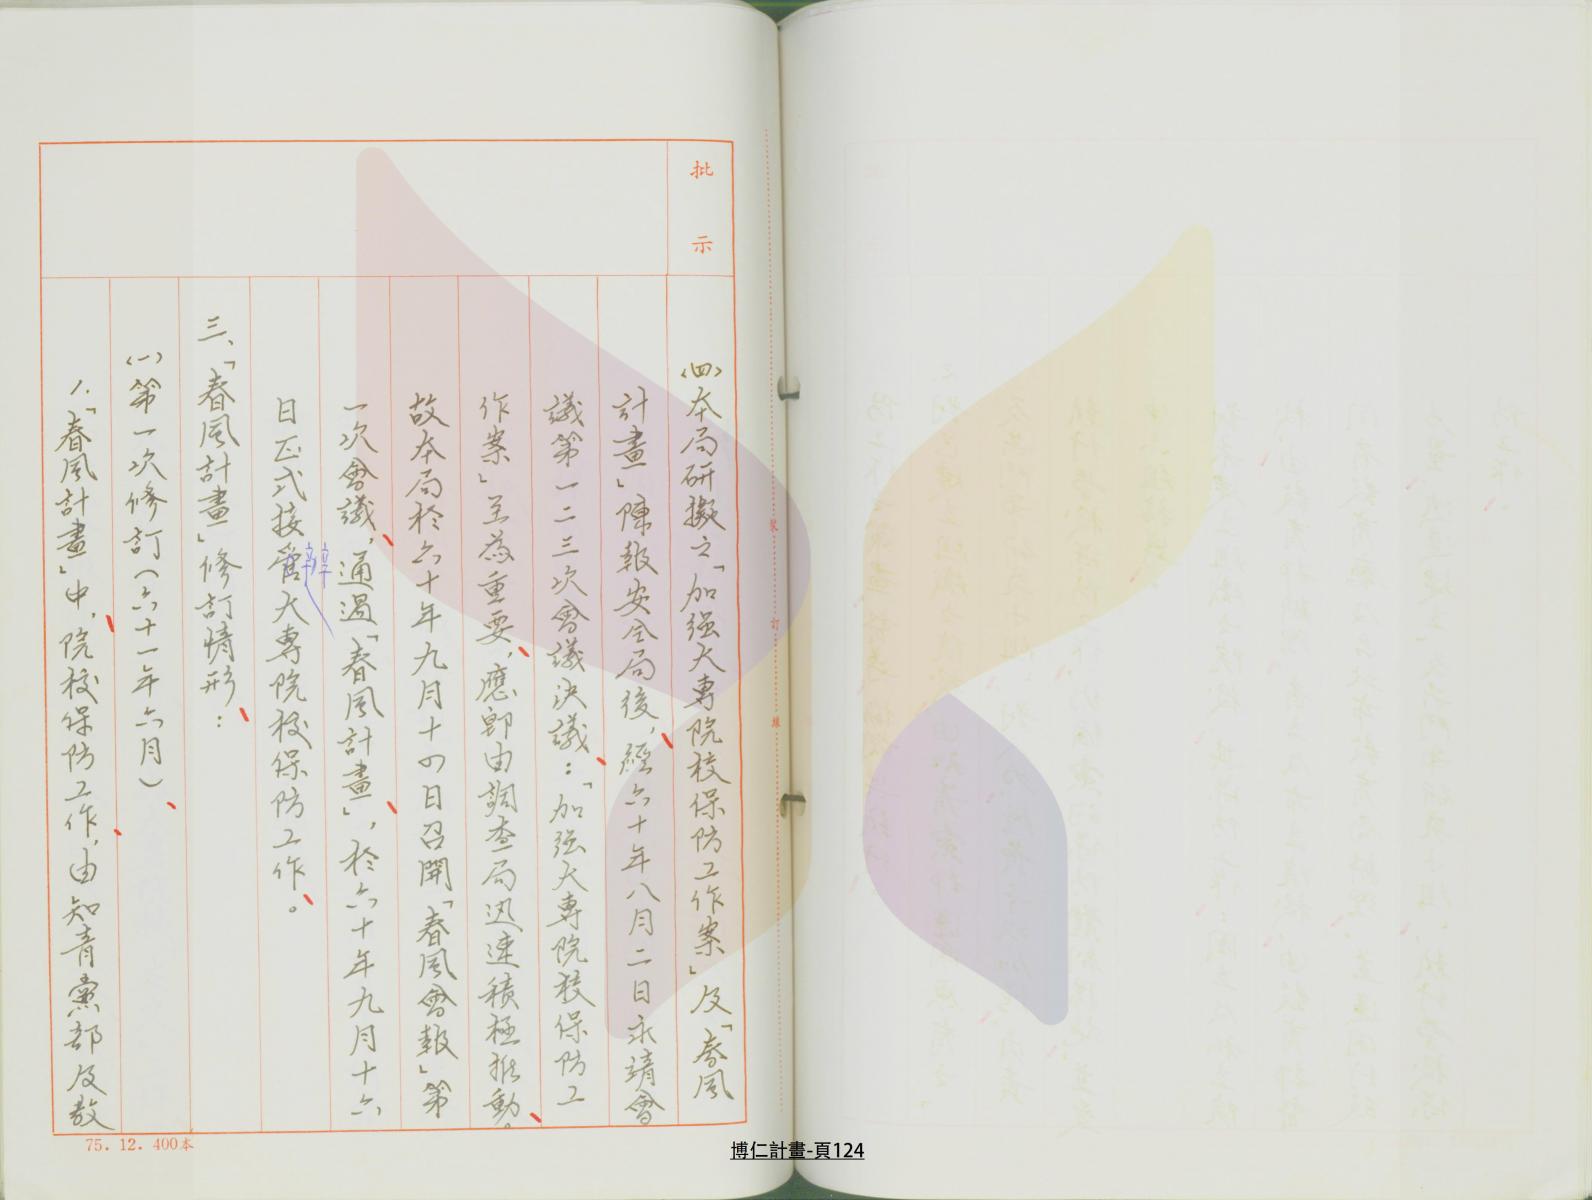 批示
㈣本局研擬之「加强大專院校保防工作案」及「春風
計畫」陳報安全局後，經六十年八月二日永靖會
議第一二三次會議決議：「加强大專院校保防工
作案」至為重要，應即由調查局迅速積極推動。
故本局於六十年九月十四日召開「春風會報」第
一次會議，通過「春風計畫」，於六十年九月十六
日正式接管大專院校保防工作。
辦
三、「春風計畫」修訂情形：
㈠第一次修訂（六十一年六月）
1.「春風計畫」中，院校保防工作，由知青黨部及教
裝訂線
75. 12. 400本
博仁計畫-頁124